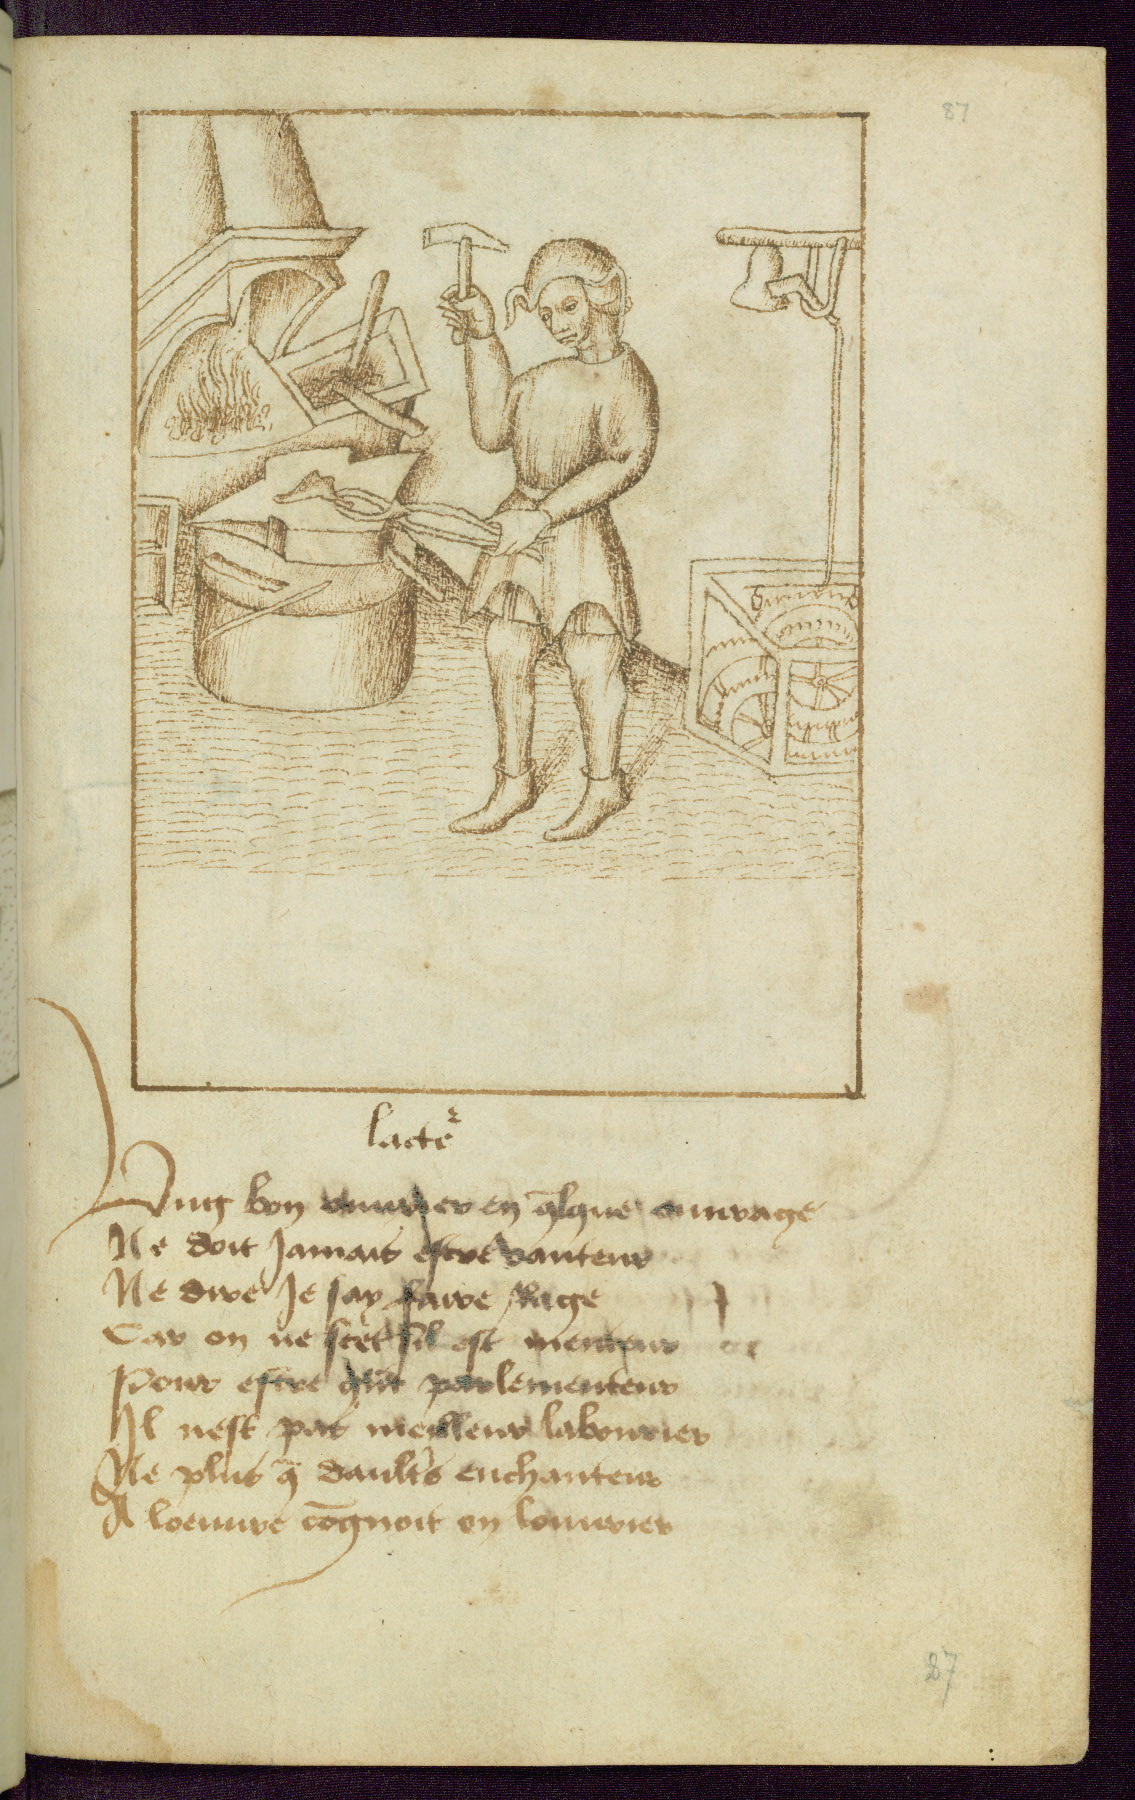 87
lacteᵉ
Ung bon ouvrier en q̄lque ouvrage
Ne doit Jamais estre vanteur
Ne dire Je say faire Rage
Car on ne scet sil est menteur
Pour estre gr̄t parlementeur
Il nest pas meilleur labourier
Ne plus q̄ daultrs enchanteur
A loeuvre cōgnoit on louvrier
87